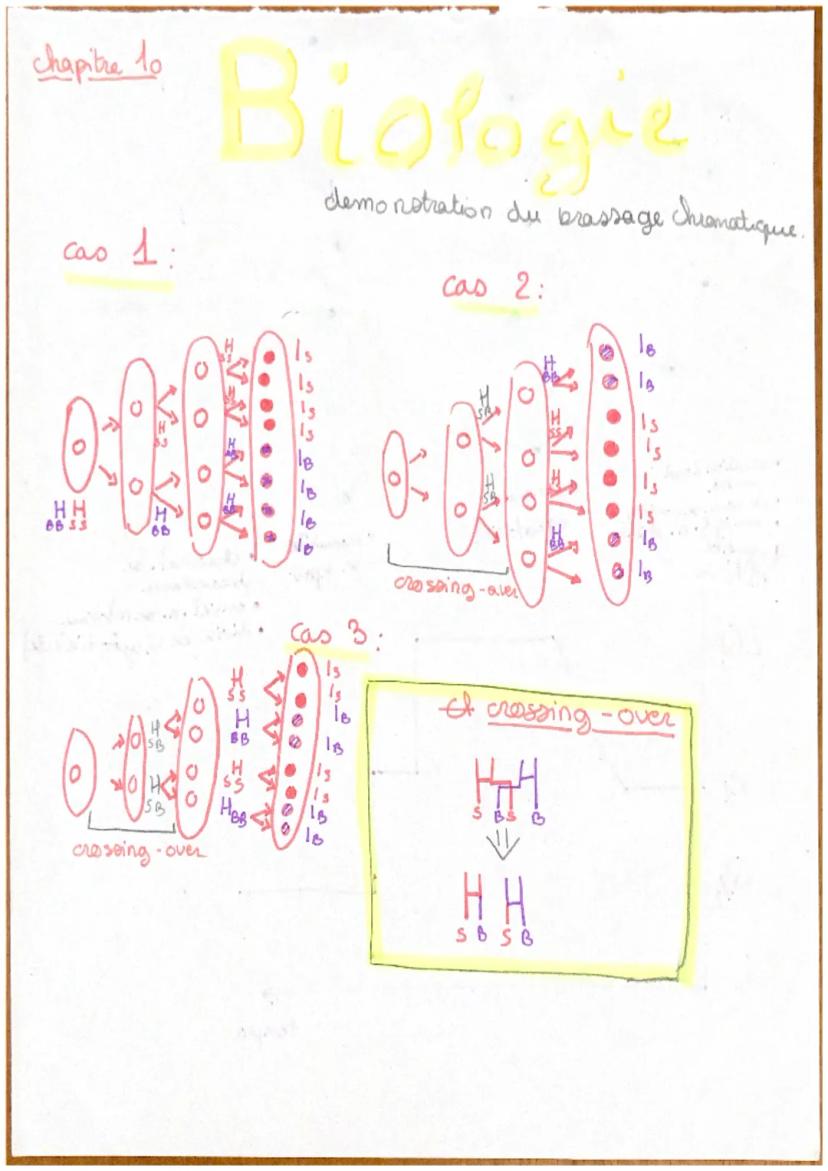 chapitre 10
Biologie
demonstration du brassage chromatique.
cas 1:
H
SS
H
SS
H
SS
H
BB
H
BB
H
BB
H H
BB SS
1s
1s
1s
1s
1B
1B
1B
1B
cas 2:
H
SB
H
SB
H
BB
H
SS
H
SS
H
BB
1B
1B
1s
1s
1s
1s
1B
1B
crossing-over
cas 3:
H
SB
H
SB
H
SS
H
BB
H
SS
H BB
1s
1s
1B
1B
1s
1s
1B
1B
crossing-over
crossing-over
H H
S B S B
H H
S B S B